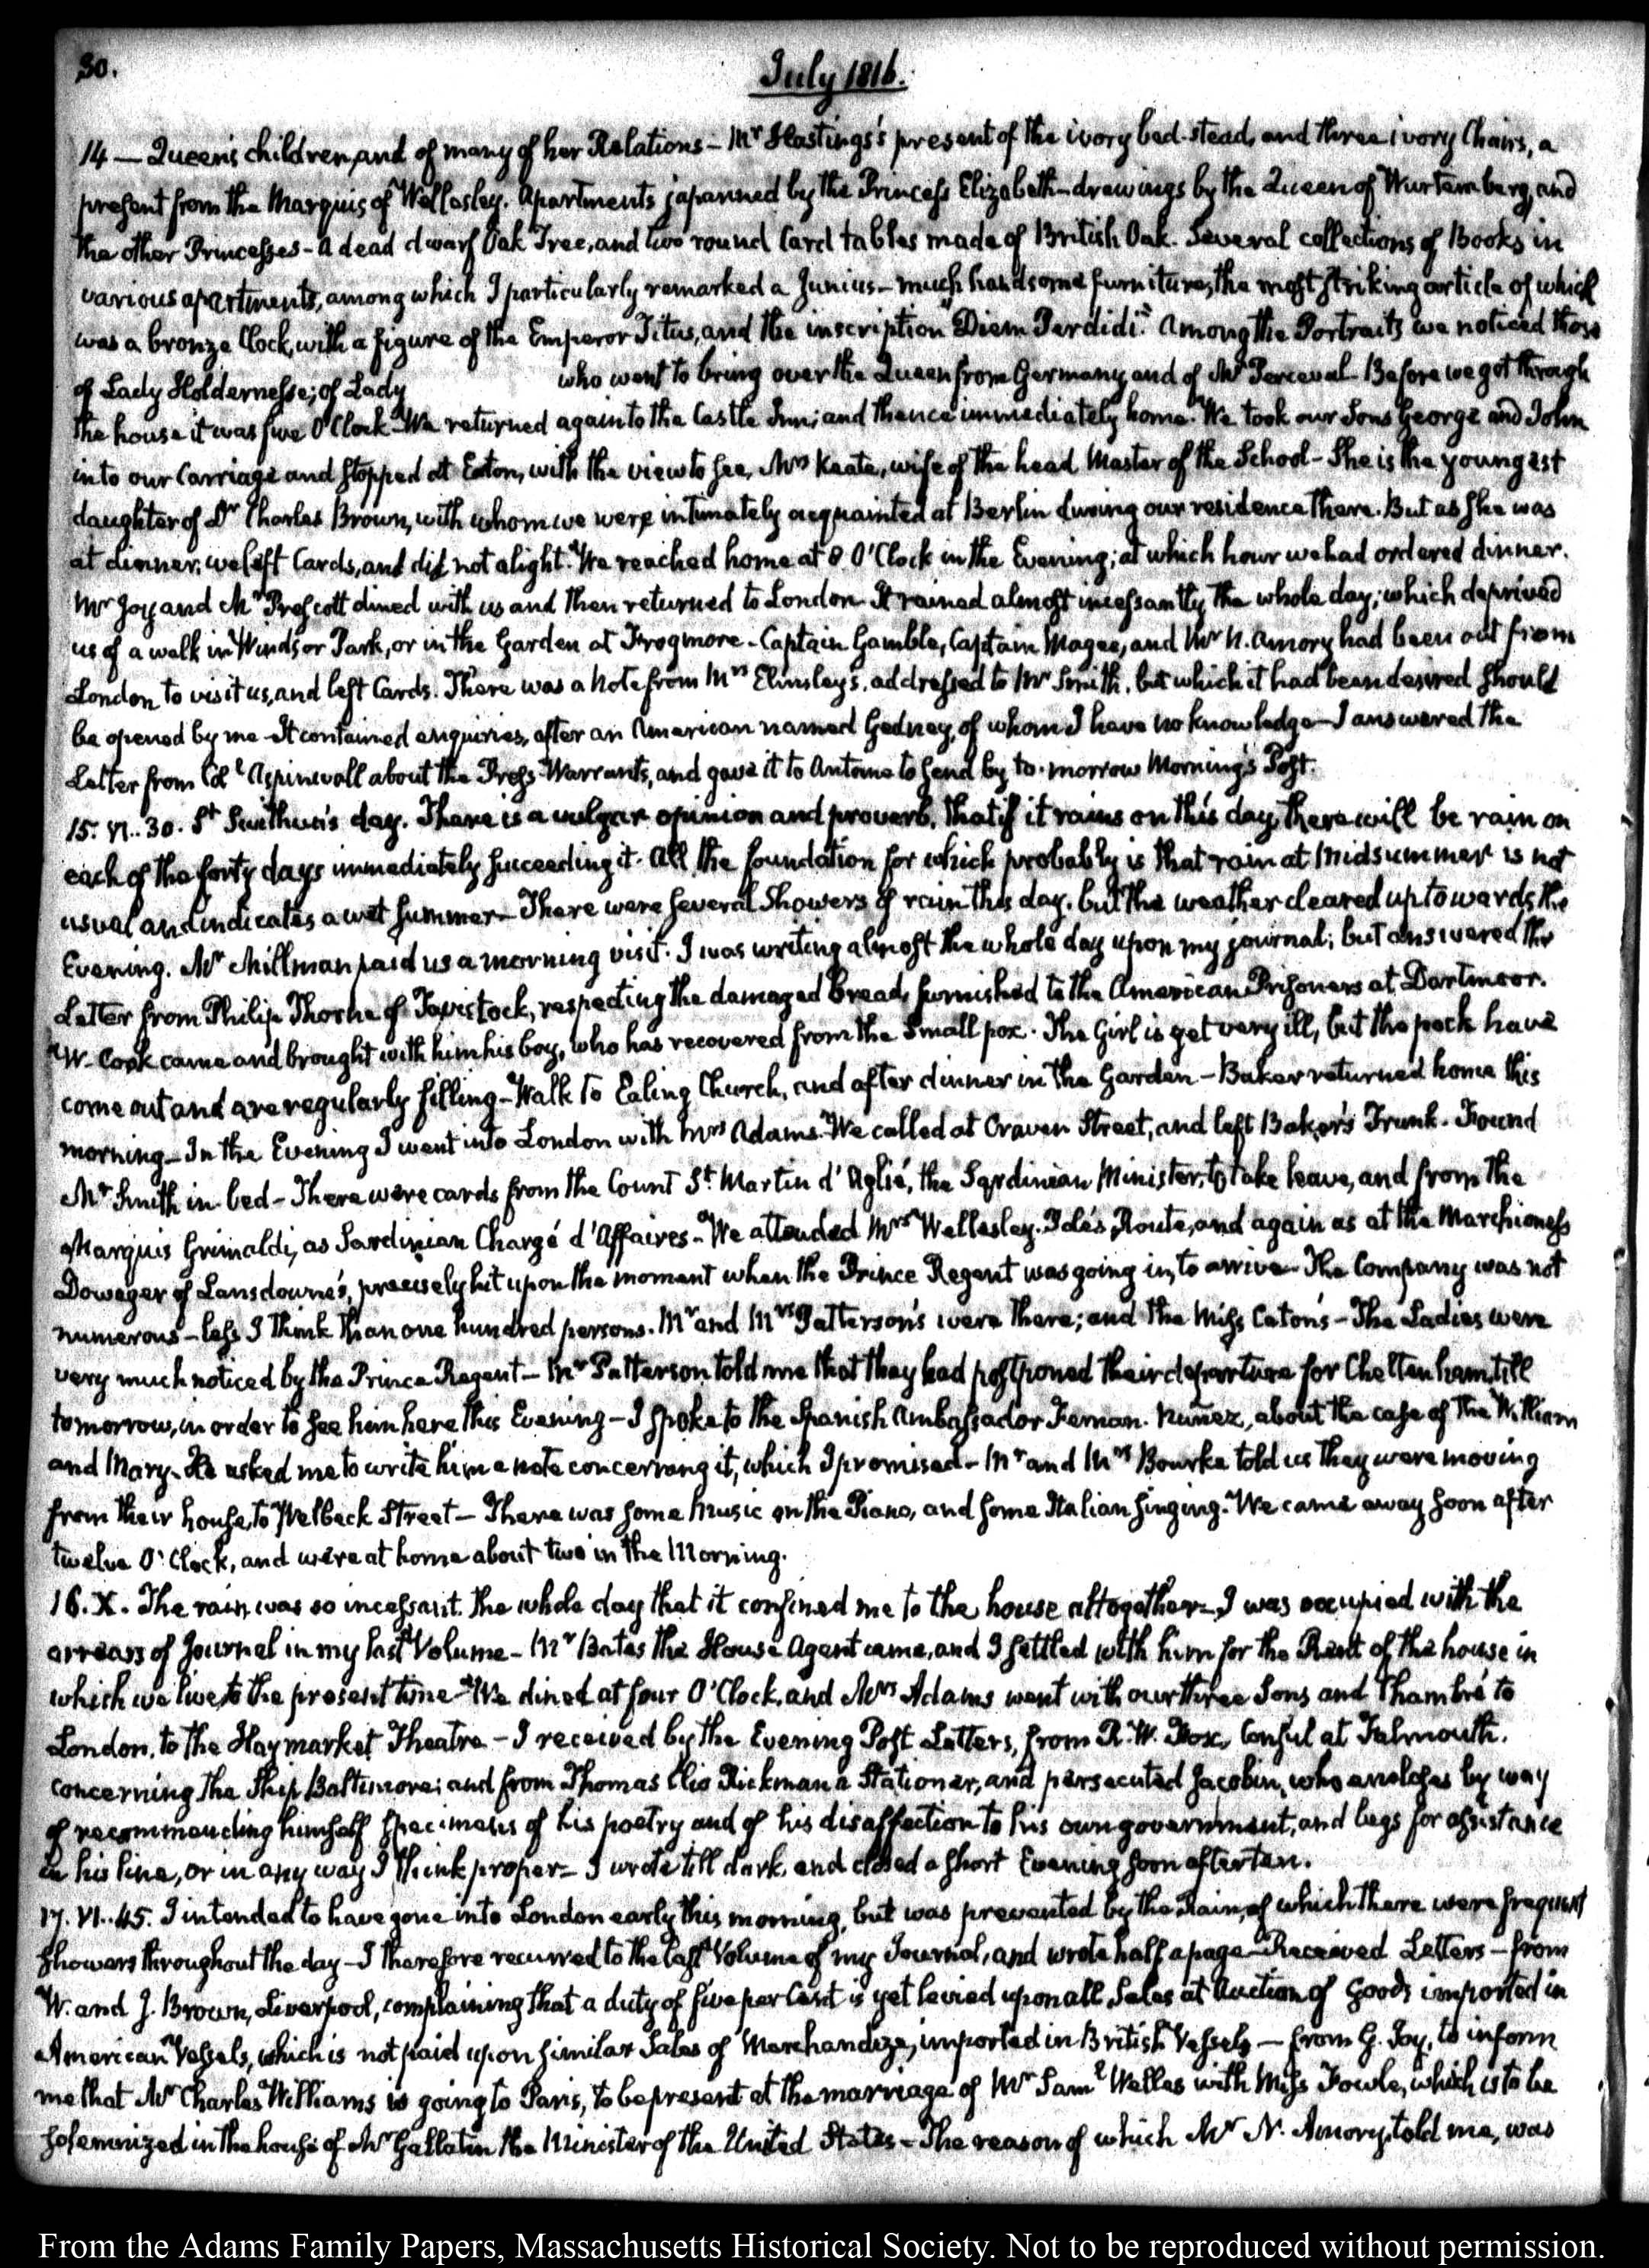 30.
July 1816.
14 — Queen's children, and of many of her Relations – Mr Hastings's present of the ivory bed-stead, and three ivory Chairs, a
present from the Marquis of Wellesley. Apartments japanned by the Princess Elizabeth – drawings by the Queen of Wurtemberg, and
the other Princesses – a dead dwarf Oak Tree, and two round Card tables made of British Oak. Several collections of Books in
various apartments, among which I particularly remarked a Junius – much handsome furniture, the most striking article of which
was a bronze Clock, with a figure of the Emperor Titus, and the inscription "Diem Perdidi." Among the Portraits we noticed those
of Lady Holdernesse; of Lady who went to bring over the Queen from Germany, and of Mr Perceval – Before we got through
the house it was five O'Clock – We returned again to the Castle Inn; and thence immediately home. We took our Sons George and John
into our Carriage and stopped at Eaton, with the view to see, Mrs Keate, wife of the head Master of the School – She is the youngest
daughter of Dr Charles Brown, with whom we were intimately acquainted at Berlin during our residence there. But as she was
at dinner, we left Cards, and did not alight. We reached home at 8 O'Clock in the Evening; at which hour we had ordered dinner.
Mr Joy and Mr Prescott dined with us and then returned to London – It rained almost incessantly the whole day; which deprived
us of a walk in Windsor Park, or in the Garden at Frogmore – Captain Gamble, Captain Magee, and Mr N. Amory had been out from
London to visit us, and left Cards. There was a Note from Mrs Elmsley's, addressed to Mr Smith, but which it had been desired should
be opened by me – It contained enquiries, after an American named Gedney, of whom I have no knowledge – I answered the
Letter from Coll Aspinwall about the Press-Warrants, and gave it to Antoine to send by to-morrow Morning's Post.
15. VI..30. St Swithun's day. There is a vulgar opinion and proverb, that if it rains on this day, there will be rain on
each of the forty days immediately succeeding it. All the foundation for which probably is that rain at Midsummer is not
usual and indicates a wet summer – There were several Showers of rain this day, but the weather cleared up towards the
Evening. Mr Millman paid us a morning visit. I was writing almost the whole day upon my journal; but answered the
Letter from Philip Thorne of Tavistock, respecting the damaged Bread, furnished to the American Prisoners at Dartmoor.
W. Cook came and brought with him his boy, who has recovered from the Small pox. The Girl is yet very ill, but the pock have
come out and are regularly filling – Walk to Ealing Church, and after dinner in the Garden – Baker returned home this
morning – In the Evening I went into London with Mrs Adams. We called at Craven Street, and left Baker's Trunk. Found
Mr Smith in bed – There were cards from the Count St. Martin d'Aglié, the Sardinian Minister, to take leave, and from the
Marquis Grimaldi, as Sardinian Chargé d'Affaires – We attended Mrs Wellesley-Pole's Route, and again as at the Marchioness
Dowager of Lansdowne's, precisely hit upon the moment when the Prince Regent was going in, to arrive – The Company was not
numerous – less I think than one hundred persons. Mr and Mrs Patterson's were there; and the Miss Caton's – The Ladies were
very much noticed by the Prince Regent – Mr Patterson told me that they had postponed their departure for Cheltenham, till
tomorrow, in order to see him here this Evening – I spoke to the Spanish Ambassador Fernan-Nuñez, about the case of the William
and Mary. He asked me to write him a note concerning it, which I promised – Mr and Mrs Bourke told us they were moving
from their house, to Welbeck Street – There was some Music on the Piano, and some Italian singing. We came away soon after
twelve O'Clock, and were at home about two in the Morning.
16. X. The rain was so incessant the whole day that it confined me to the house altogether – I was occupied with the
arrears of Journal in my last Volume – Mr Bates the House Agent came, and I settled with him for the Rent of the house in
which we live to the present time – We dined at four O'Clock, and Mrs Adams went with our three Sons and Thambré to
London, to the Haymarket Theatre – I received by the Evening Post Letters, from R. W. Fox, Consul at Falmouth,
concerning the Ship Baltimore; and from Thomas Clio Rickman a Stationer, and persecuted Jacobin, who encloses by way
of recommending himself specimens of his poetry and of his disaffection to his own government, and begs for assistance
in his line, or in any way I think proper – I wrote till dark, and closed a short Evening soon after ten.
17. VI..45. I intended to have gone into London early this morning, but was prevented by the Rain, of which there were frequent
showers throughout the day – I therefore recurred to the last Volume of my Journal, and wrote half a page – Received Letters – from
W. and J. Brown, Liverpool, complaining that a duty of five per Cent is yet levied upon all Sales at Auction of Goods imported in
American Vessels, which is not paid upon similar Sales of Merchandize, imported in British Vessels – from G. Joy, to inform
me that Mr Charles Williams is going to Paris, to be present at the marriage of Mr Saml Welles with Miss Fowle, which is to be
solemnized in the house of Mr Gallatin the Minister of the United States – The reason of which Mr N. Amory, told me, was
From the Adams Family Papers, Massachusetts Historical Society. Not to be reproduced without permission.